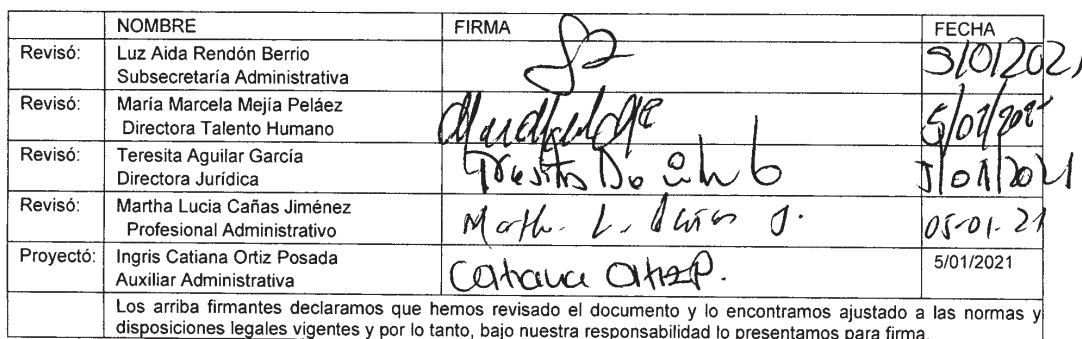 NOMBRE FIRMA FECHA
Revisó: Luz Aida Rendón Berrio
Subsecretaría Administrativa
5/01/2021
Revisó: María Marcela Mejía Peláez
Directora Talento Humano
5/01/2021
Revisó: Teresita Aguilar García
Directora Jurídica
5/01/2021
Revisó: Martha Lucia Cañas Jiménez
Profesional Administrativo
Martha L. Cañas J. 05-01-21
Proyectó: Ingris Catiana Ortiz Posada
Auxiliar Administrativa
Catiana Ortiz P. 5/01/2021
Los arriba firmantes declaramos que hemos revisado el documento y lo encontramos ajustado a las normas y
disposiciones legales vigentes y por lo tanto, bajo nuestra responsabilidad lo presentamos para firma.